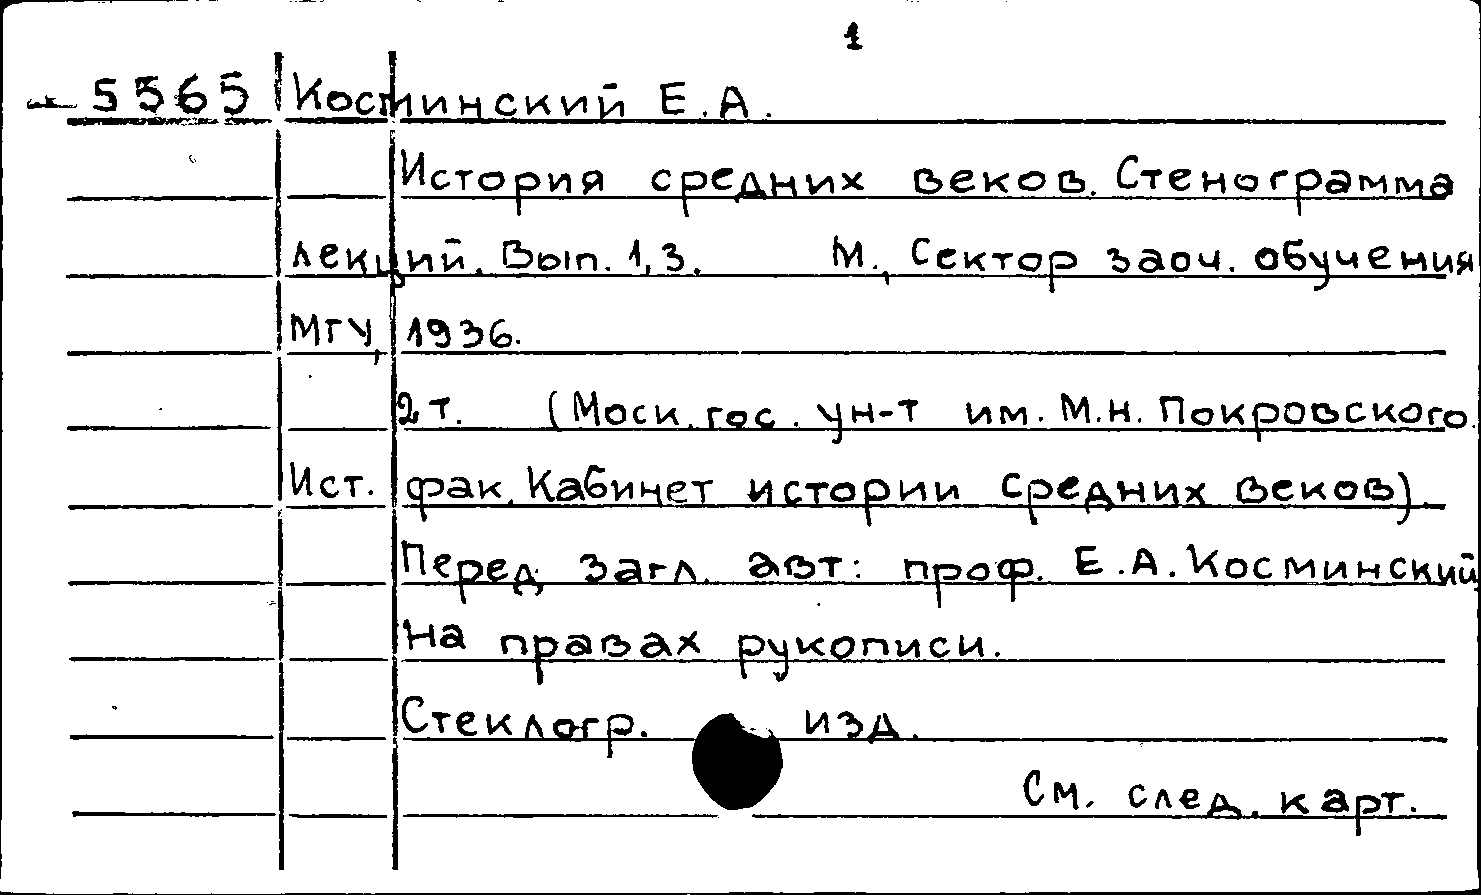 1
5565 Косминский Е.А.
История средних веков. Стенограмма
лекций. Вып. 1,3. М., Сектор заоч. обучения
МГУ, 1936.
2 т. (Моск. гос. ун-т им. М.Н. Покровского.
Ист. фак. Кабинет истории средних веков).
Перед загл. авт: проф. Е.А. Косминский
На правах рукописи.
Стеклогр. изд.
См. след. карт.